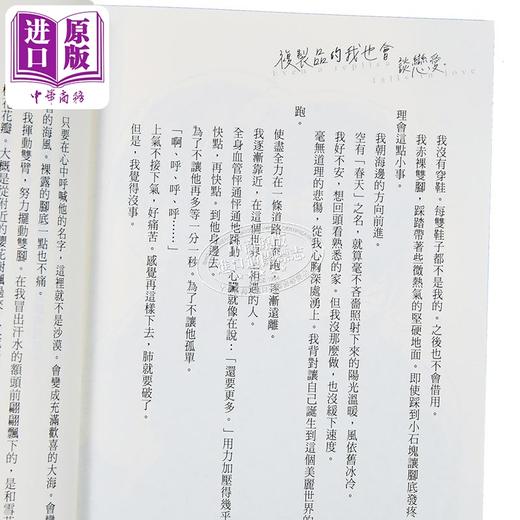 进口
原版
中華商務
複製品的我也會
談戀愛
Even a replica
falls in love
我沒有穿鞋。每雙鞋子都不是我的。之後也不會借用。
我赤裸雙腳，踩踏帶著些微熱氣的堅硬地面。即使踩到小石塊讓腳底發疼
理會這點小事。
我朝海邊的方向前進。
空有「春天」之名，就算毫不吝嗇照射下來的陽光溫暖，風依舊冰冷。
我好不安，想回頭看熟悉的家。但我沒那麼做，也沒緩下速度。
毫無道理的悲傷，從我心胸深處湧上。我背對讓自己誕生到這個美麗世界的
跑。
使盡全力在一條道路上奔跑，逐漸遠離
我逐漸靠近，在這個世界上相遇的人。
全身血管怦通怦通地跳動，心臟就像在說：「還要更多。」用力加壓得幾乎
快點，再快點。到他身邊去
為了不讓他再多等一分一秒。為了不讓他孤單。
「啊、呼、呼、呼……」
上氣不接下氣，好痛苦。感覺再這樣下去，肺就要破了。
但是，我覺得沒事。
只要在心中呼喊他的名字，這裡就不是沙漠。會變成充滿歡喜的大海。會變
的海風。裸露的腳底一點也不痛。
我揮動雙臂，努力擺動雙腳。在我冒出汗水的額頭前翩翩飄下的，是和雪花
花瓣。大概是從附近的櫻花樹飄過來